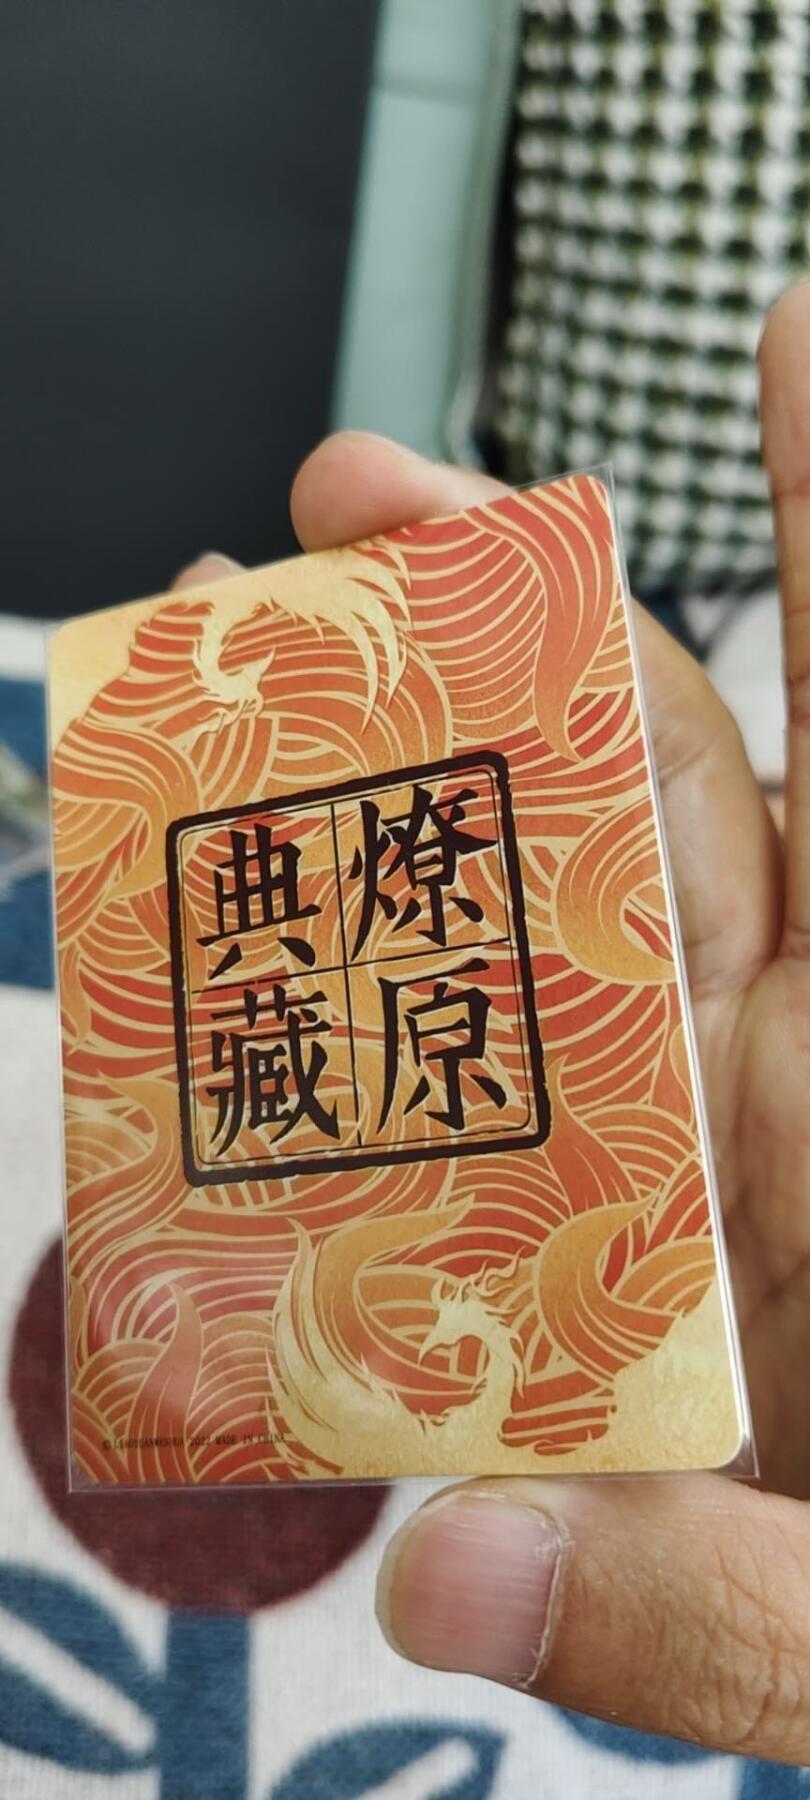 燎原
典藏
© LIAOYUANWENHUA 2022 MADE IN CHINA